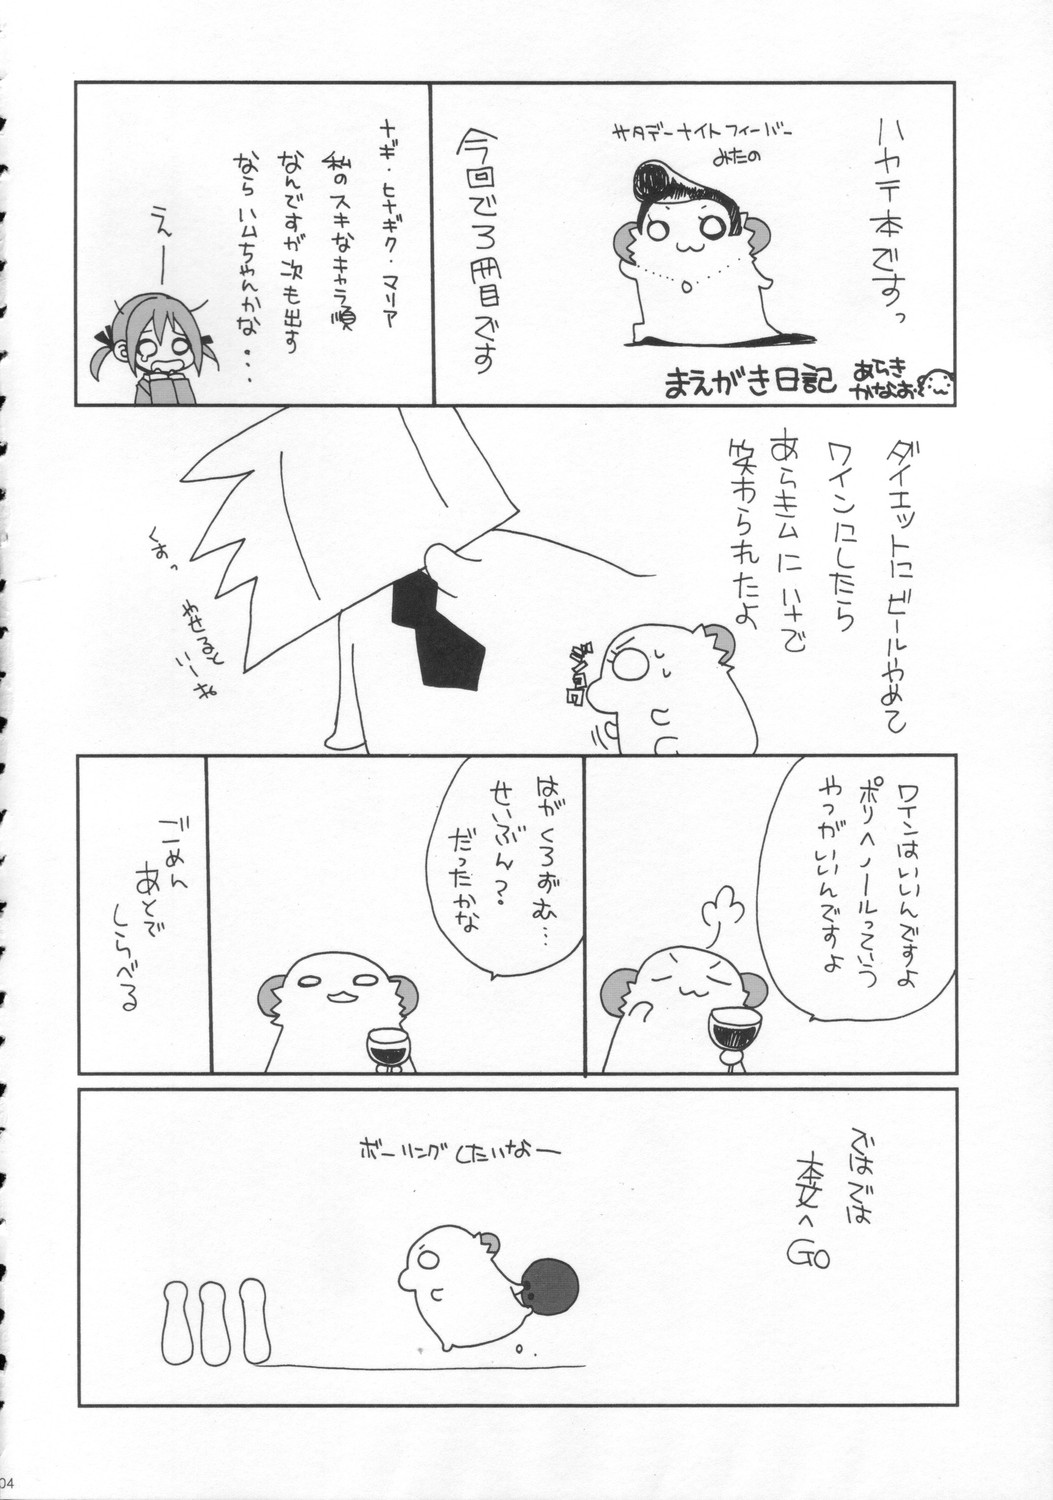 ハヤテ本ですっ
サタデーナイトフィーバー
みたの
今回で3冊目です
まえがき日記
あらき
かなお
ナギ・ヒナギク・マリア
私のスキなキャラ順
なんですが次も出す
なら ハムちゃんかな・・・
えー
ダイエットにビールやめて
ワインにしたら
あらきムにいさで
笑わられたよ
くすっ
やせると
いーね
ワインはいいんですよ
ポリヘノールっていう
やつがいいんですよ
はがくろずむ…
せいぶん?
だったかな
ごめん
あとで
しらべる
ではでは
本文へ
GO
ボーリングしたいなー
04